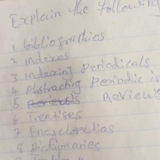 Explain the following
1 bibliographies
2 Indexes
3 Indexing Periodicals
4 Abstracting Periodic
5 Reviews
6 Treatises
7 Encyclopedias
8 Dictionaries